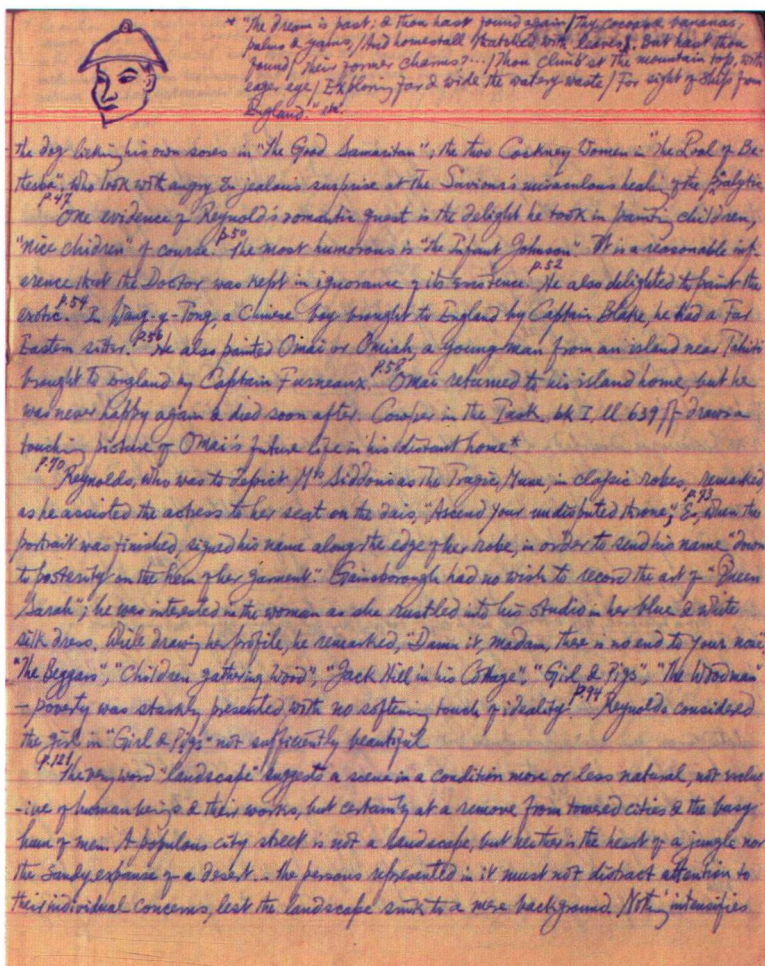 * "The dream is past; & thou hast found again / Thy cocoas & bananas,
palms & yams, / And homestall thatched with leaves. But hast thou
found / Their former charms? ... / Thou climb'st the mountain top, with
eager eye / Exploring far & wide the watery waste / For sight of ship from
England." etc.
the dog licking his own sores in "The Good Samaritan"; the two Cockney Women in "The Pool of Be-
thesda", who look with angry & jealous surprise at the Saviour's miraculous healing of the Paralytic
p.47
One evidence of Reynold's romantic quest is the delight he took in painting children,
p.50
"nice chidren" of course. The most humorous is "The Infant Johnson". It is a reasonable inf-
p.52
erence that the Doctor was kept in ignorance of its existence. He also delighted to paint the
p.54
exotic. In Wang-y-Tong, a Chinese boy brought to England by Captain Blake, he had a Far
p.56
Eastern sitter. He also painted Omai or Omiah, a young man from an island near Tahiti
p.58
brought to England by Captain Furneaux. Omai returned to his island home, but he
was never happy again & died soon after. Cowper in the Task, bk I, ll 639 ff draws a
touching picture of Omai's future life in his distant home*
p.90
Reynolds, who was to depict Mrs Siddons as the Tragic Muse, in classic robes, remarked
p.93
as he assisted the actress to her seat on the dais, "Ascend your undisputed throne"; &, when the
portrait was finished, signed his name along the edge of her robe, in order to send his name "down
to posterity on the hem of her garment." Gainsborough had no wish to record the art of "Queen
Sarah"; he was interested in the woman as she rustled into his studio in her blue & white
silk dress. While drawing her profile, he remarked, "Damn it, madam, there is no end to your nose".
"The Beggars", "Children gathering Wood", "Jack Hill in his Cottage", "Girl & Pigs", "The Woodman"
p.94
- poverty was starkly presented with no softening touch of ideality. Reynolds considered
the girl in "Girl & Pigs" not sufficiently beautiful
p.121
The very word "landscape" suggests a scene in a condition more or less natural, not exclus
-ive of human beings & their works, but certainly at a remove from towered cities & the busy
hum of men. A populous city street is not a landscape, but neither is the heart of a jungle nor
the sandy expanse of a desert. .. the persons represented in it must not distract attention to
their individual concerns, lest the landscape sinks to a mere background. Noth'g intensifies